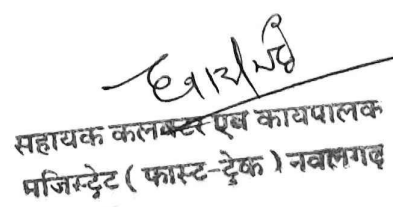 सहायक कलक्टर एवं कायपालक
मजिस्ट्रेट ( फास्ट-ट्रेक ) नवलगढ़